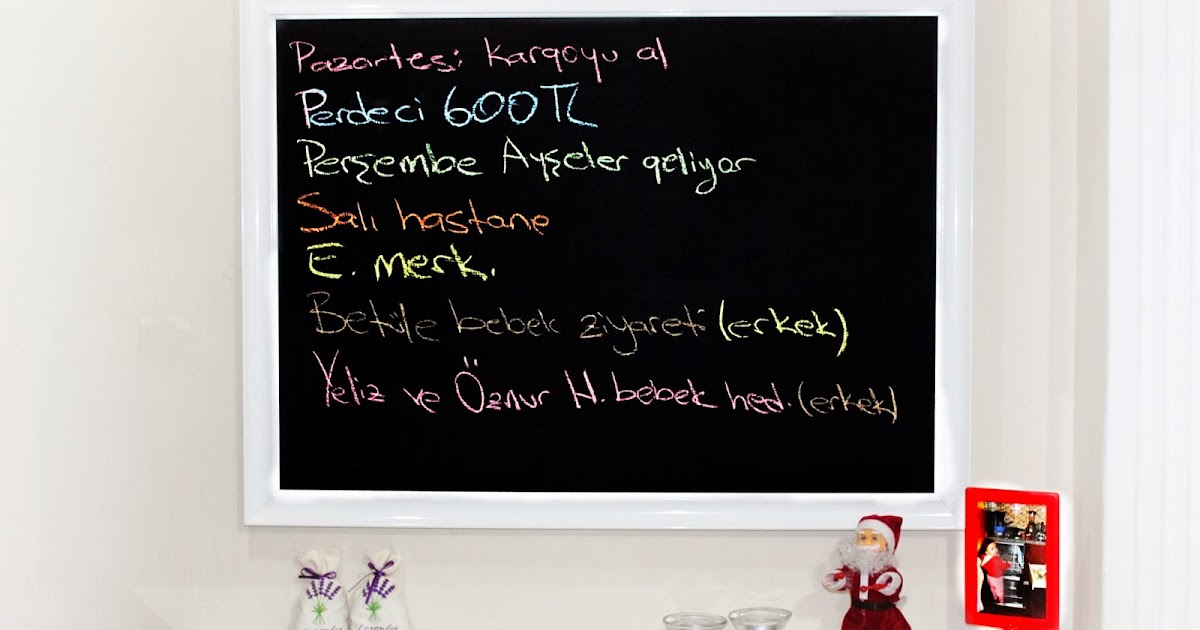 Pazartesi kargoyu al
Perdeci 600TL
Perşembe Ayşeler geliyor
Salı hastane
E. merk.
Betüle bebek ziyareti (erkek)
Yeliz ve Öznur H. bebek hed. (erkek)
Lavender